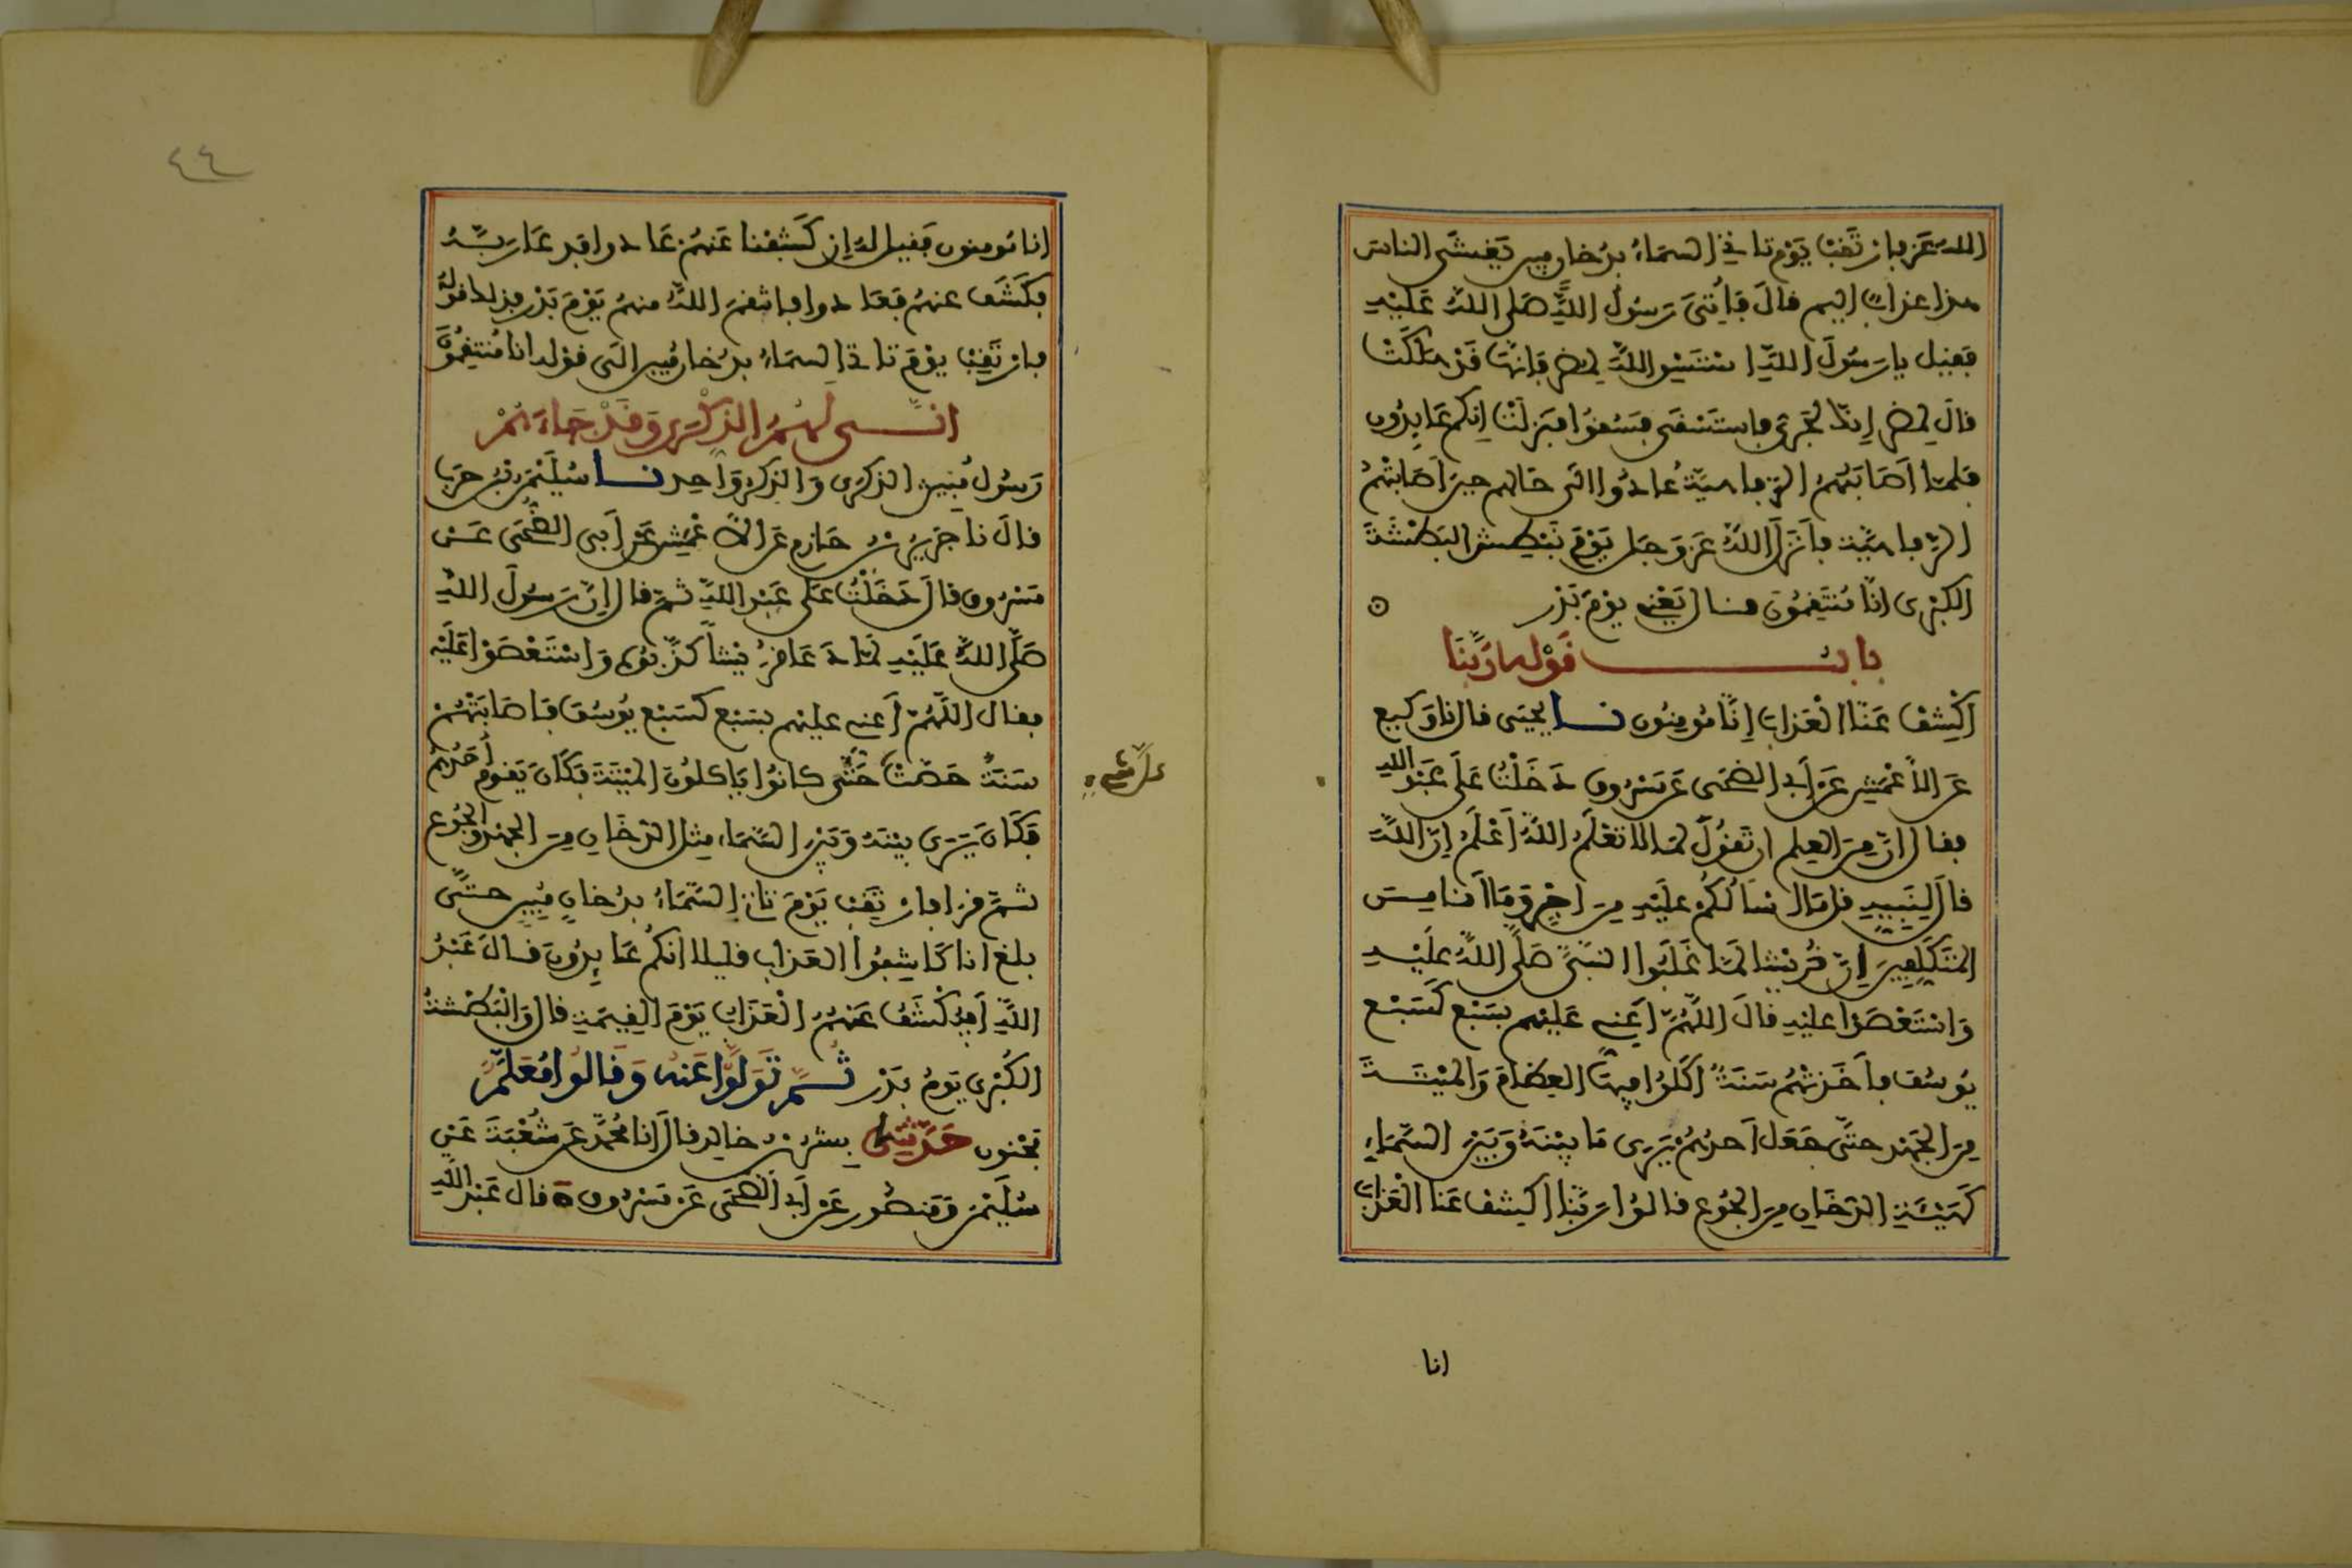 الله عز فارتقب يوم تاتي السماء بدخان مبين يغشى الناس
هذا عذاب اليم قال فأتي رسول الله صلى الله عليه
فقيل يا رسول الله استسق الله لمضر فإنها قد هلكت
قال لمضر إنك لجرئ فاستسقى فسقوا فنزلت إنكم عايدون
فلما أصابتهم الرفاهية عادوا الى حالهم حين أصابتهم
الرفاهية فأنزل الله عز وجل يوم نبطش البطشة
الكبرى انا منتقمون قال يعني يوم بدر
باب قوله ربنا
اكشف عنا العذاب إنا مومنون نا يحيى قال نا وكيع
عن الأعمش عن أبي الضحى عن مسروق دخلت على عبد الله
فقال ان من العلم ان تقول لما لا تعلم الله أعلم إن الله
قال لنبيه قل ما اسألكم عليه من اجر وما أنا من
المتكلفين إن قريشا لما غلبوا النبي صلى الله عليه
واستعصوا عليه قال اللهم أعني عليهم بسبع كسبع
يوسف فأخذتهم سنة أكلوا فيها العظام والميتة
من الجهد حتى جعل أحدهم يرى ما بينه وبين السماء
كهيئة الدخان من الجوع قالوا ربنا اكشف عنا العذاب
انا
٤٤
انا مومنون فقيل له إن كشفنا عنهم عادوا فدعا ربه
فكشف عنهم فعادوا فانتقم الله منهم يوم بدر فذلك قوله
فارتقب يوم تاتي السماء بدخان مبين الى قوله انا منتقمون
انى لهم الذكرى وقد جاءهم
رسول مبين الذكرى والذكر واحد نا سليمن بن حرب
قال نا جرير بن حازم عن الأعمش عن أبي الضحى عن
مسروق قال دخلت على عبد الله ثم قال إن رسول الله
صلى الله عليه لما دعا قريشا كذبوه واستعصوا عليه
فقال اللهم أعني عليهم بسبع كسبع يوسف فأصابتهم
سنة حصت حتى كانوا ياكلون الميتة فكان يقوم أحدهم
فكان يرى بينه وبين السماء مثل الدخان من الجهد والجوع
ثم قرا فارتقب يوم تاتي السماء بدخان مبين حتى
بلغ انا كاشفوا العذاب قليلا انكم عايدون قال عبد
الله أفيكشف عنهم العذاب يوم القيمة قال والبطشة
الكبرى يوم بدر ثم تولوا عنه وقالوا معلم
مجنون حدثني بشر بن خالد قال انا محمد عن شعبة عن
سليمن ومنصور عن أبي الضحى عن مسروق قال عبد الله